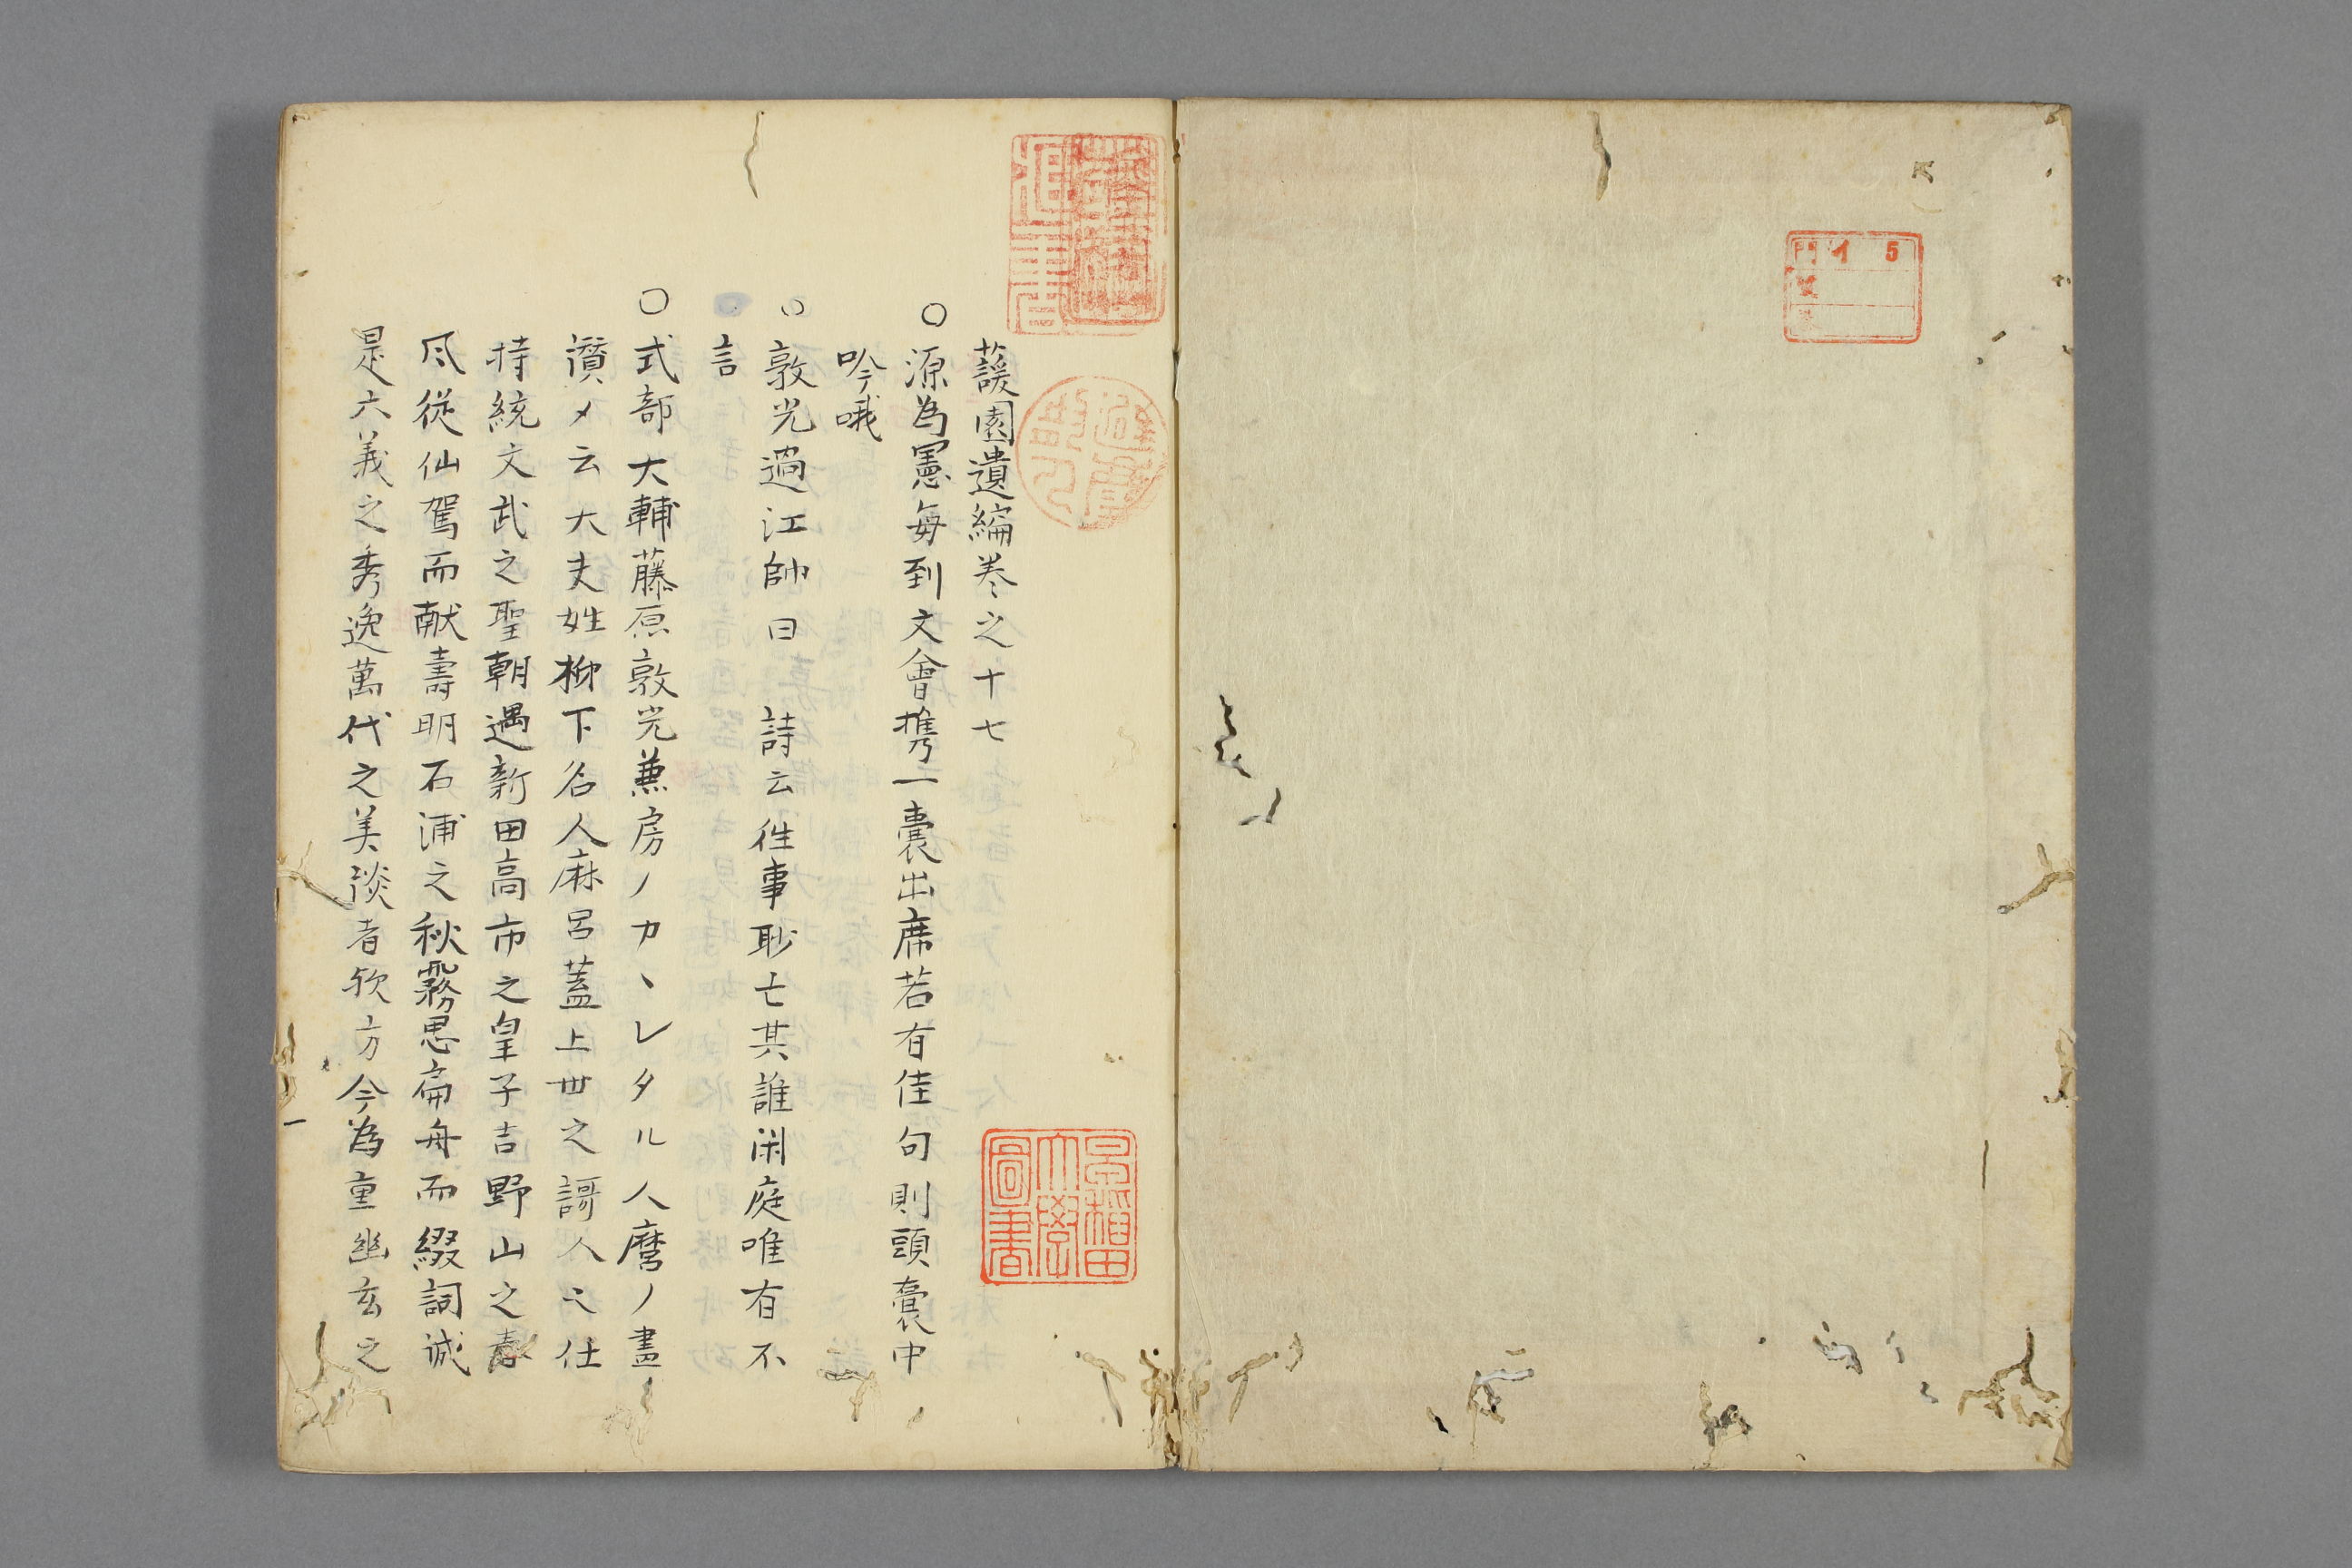 5 イ 門
蘐園遺編巻之十七
○源為憲每到文會携一囊出席若有佳句則頭囊中
吟哦
○敦光過江帥曰 詩云徃事眇亡其誰閑庭唯有不
言
○式部大輔藤原敦光兼房ノカヽレタル人麿ノ畫
讃メ云大夫姓柳下名人麻呂蓋上世之謌人也仕
持統文武之聖朝遇新田高市之皇子吉野山之春
風從仙駕而献壽明石浦之秋霧思扁舟而綴詞誠
是六義之秀逸萬代之美談者欤方今為重幽玄之
早稲田
大學
圖書